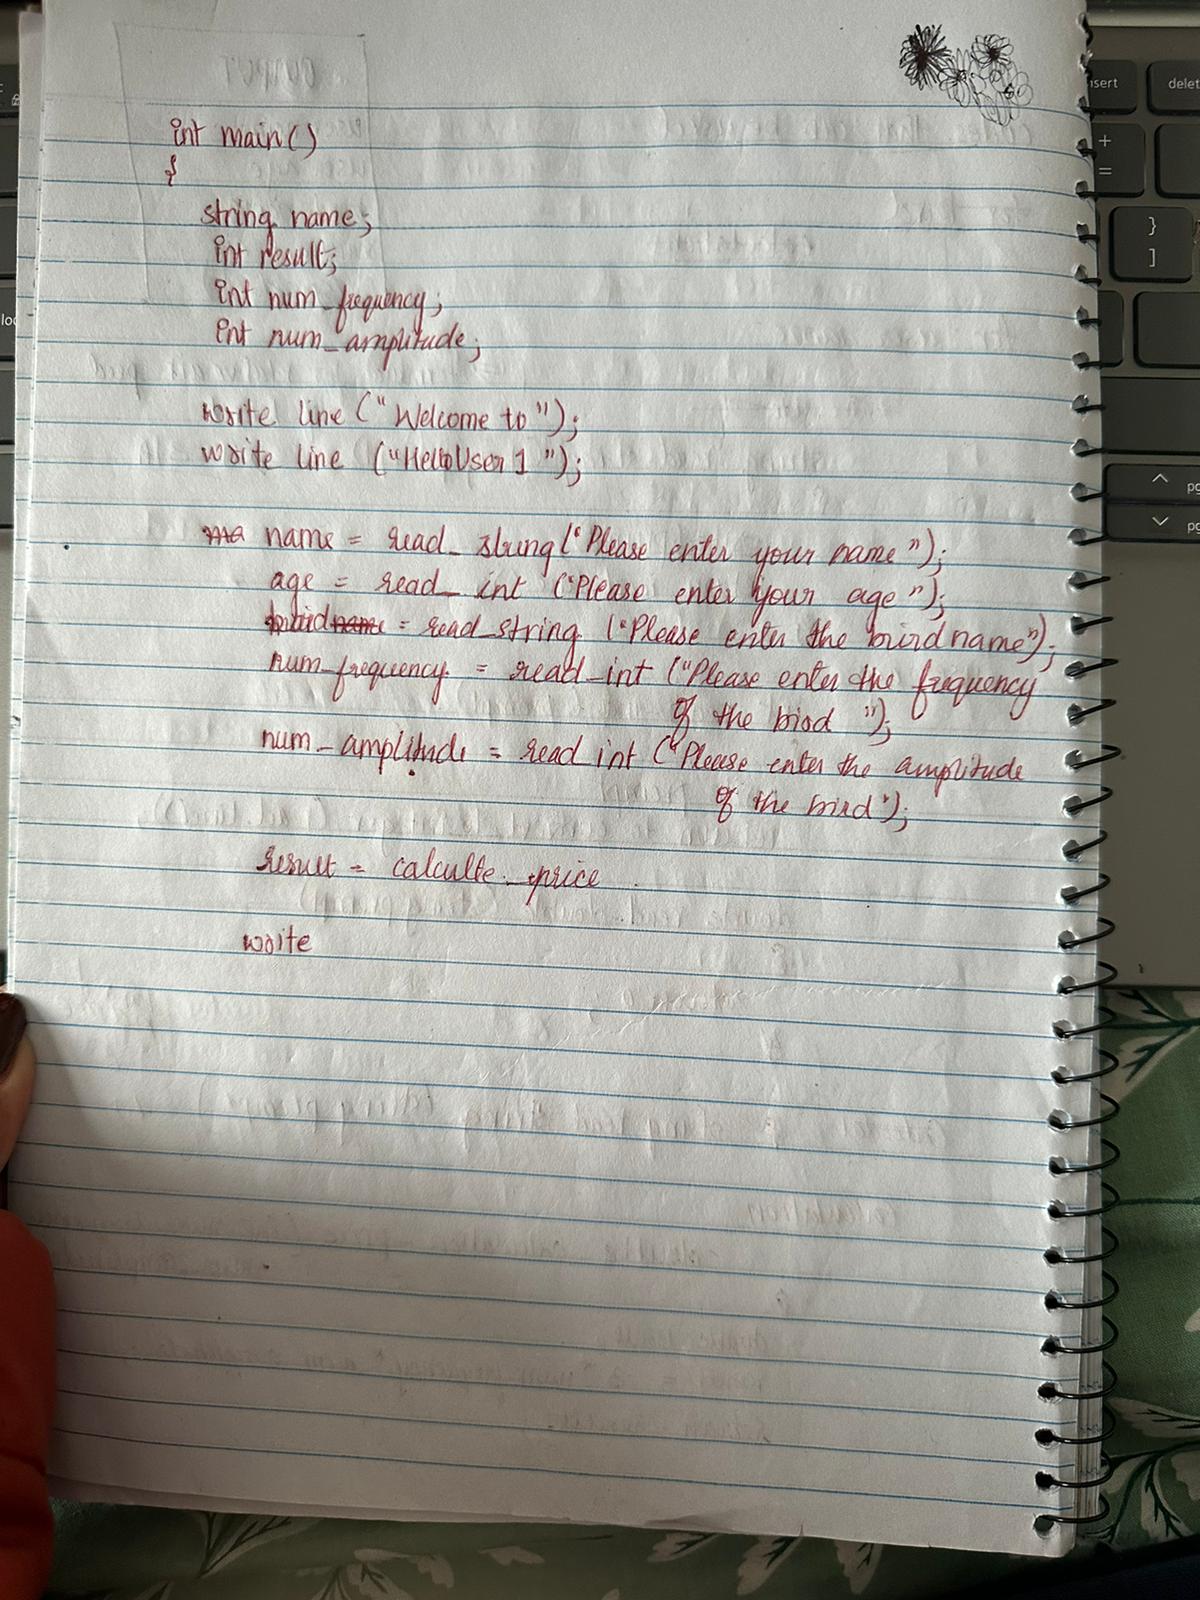 int main()
{
string name;
int result;
int num_frequency;
int num_amplitude;
write line ("Welcome to");
write line ("Hello User 1");
name = read_string("Please enter your name");
age = read_int ("Please enter your age");
= read_string ("Please enter the bird name");
num_frequency = read_int ("Please enter the frequency
of the bird ");
num_amplitude = read int ("Please enter the amplitude
of the bird");
result = calculte_price
write
insert
delet
+
=
}
]
pg
pg